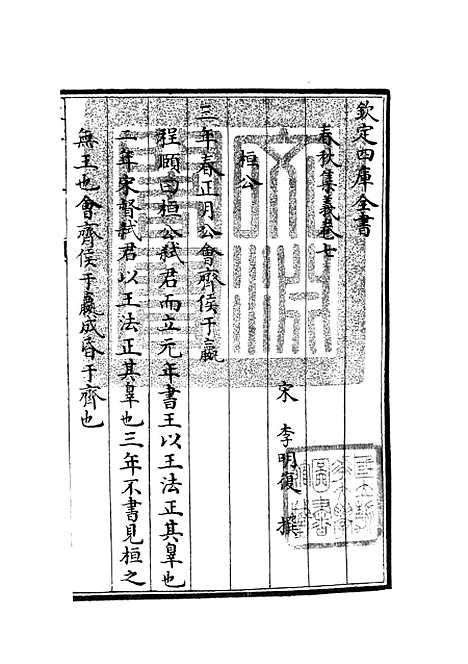 欽定四庫全書
春秋集義卷七
宋 李明復 撰
桓公
三年春正月公會齊侯于嬴
程頤曰桓公弑君而立元年書王以王法正其辠也
二年宋督弑君以王法正其辠也三年不書見桓之
無王也會齊侯于嬴成昏于齊也